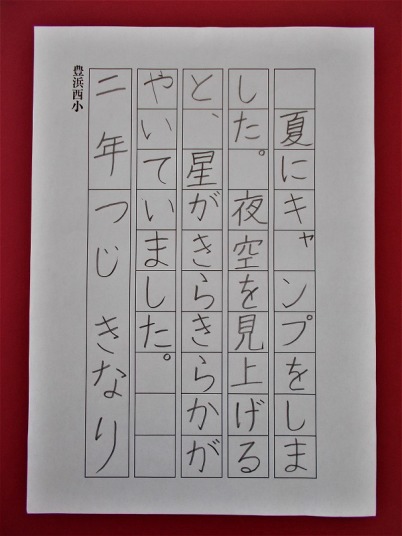 夏にキャンプをしま
した。夜空を見上げる
と、星がきらきらかが
やいていました。
二年 つじ きなり
豊浜西小